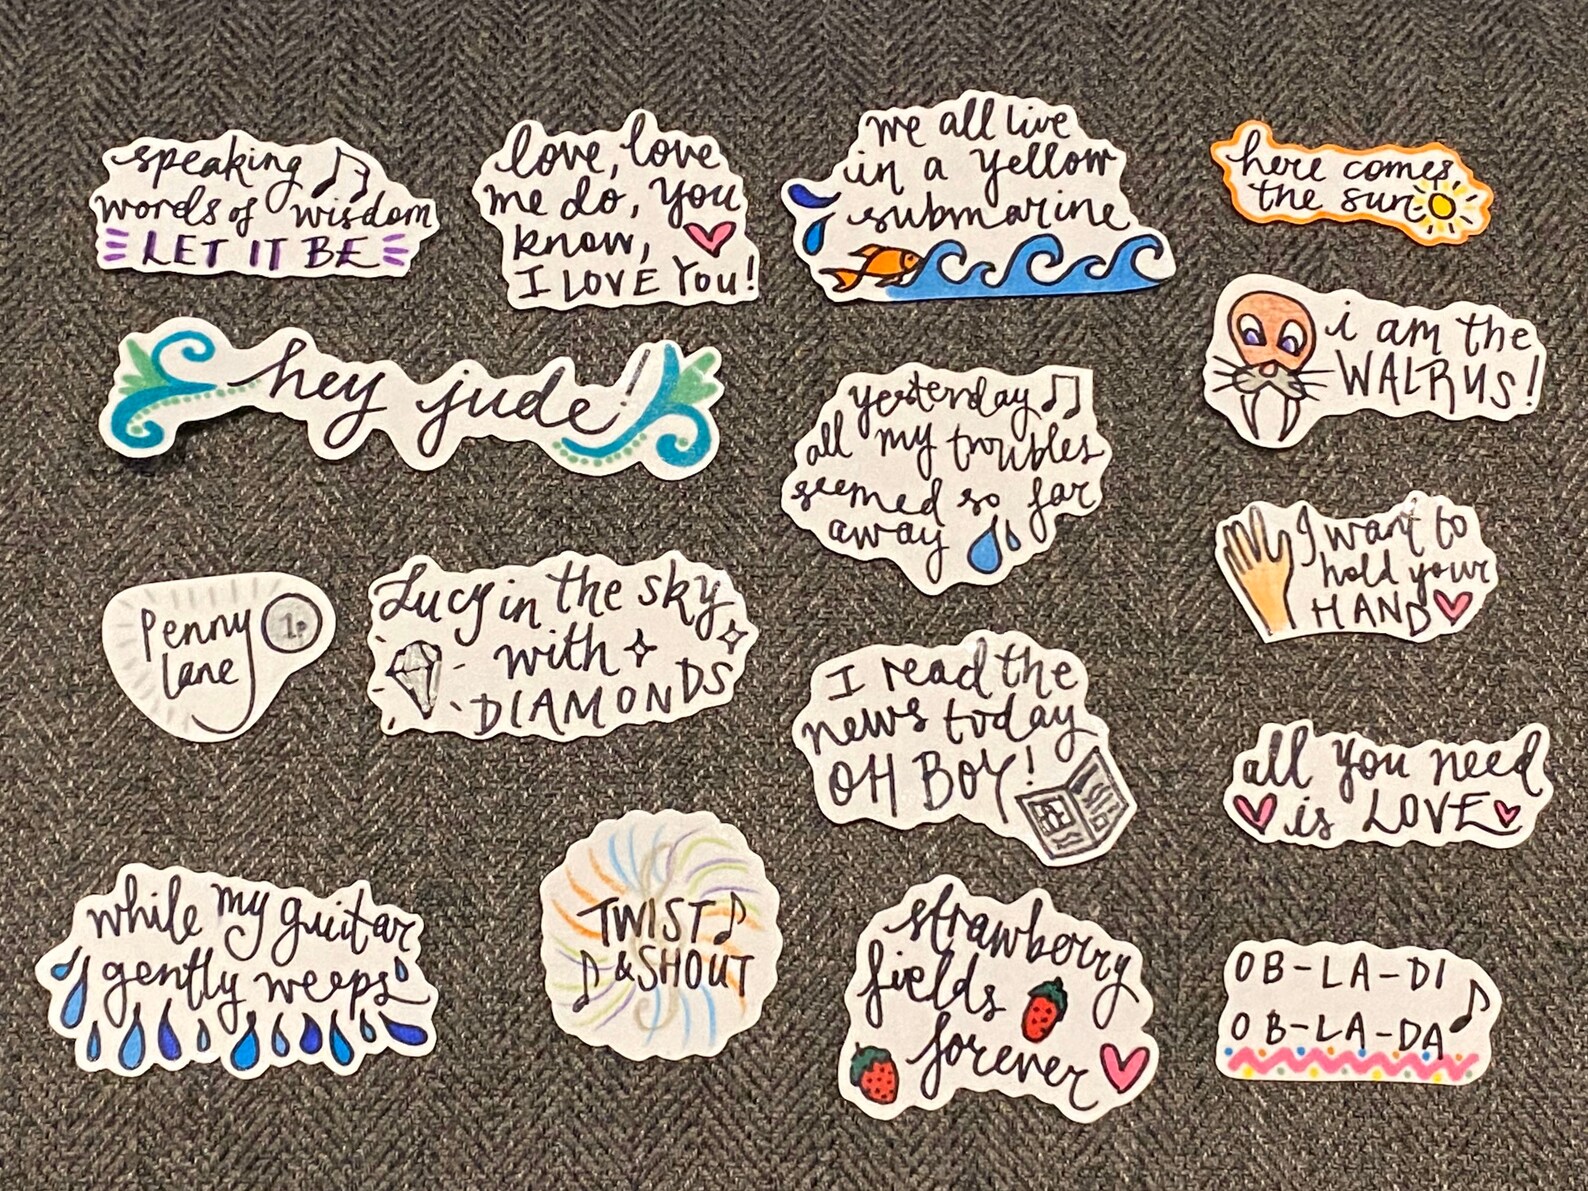 speaking
words of wisdom
LET IT BE
love, love
me do, you
know,
I LOVE You!
we all live
in a yellow
submarine
here comes
the sun
hey jude!
yesterday
all my troubles
seemed so far
away
i am the
WALRUS!
I want to
hold your
HAND
Penny
Lane
1P
Lucy in the sky
with
DIAMONDS
I read the
news today
OH BOY!
all you need
is LOVE
while my guitar
gently weeps
TWIST
& SHOUT
strawberry
fields
forever
OB-LA-DI
OB-LA-DA